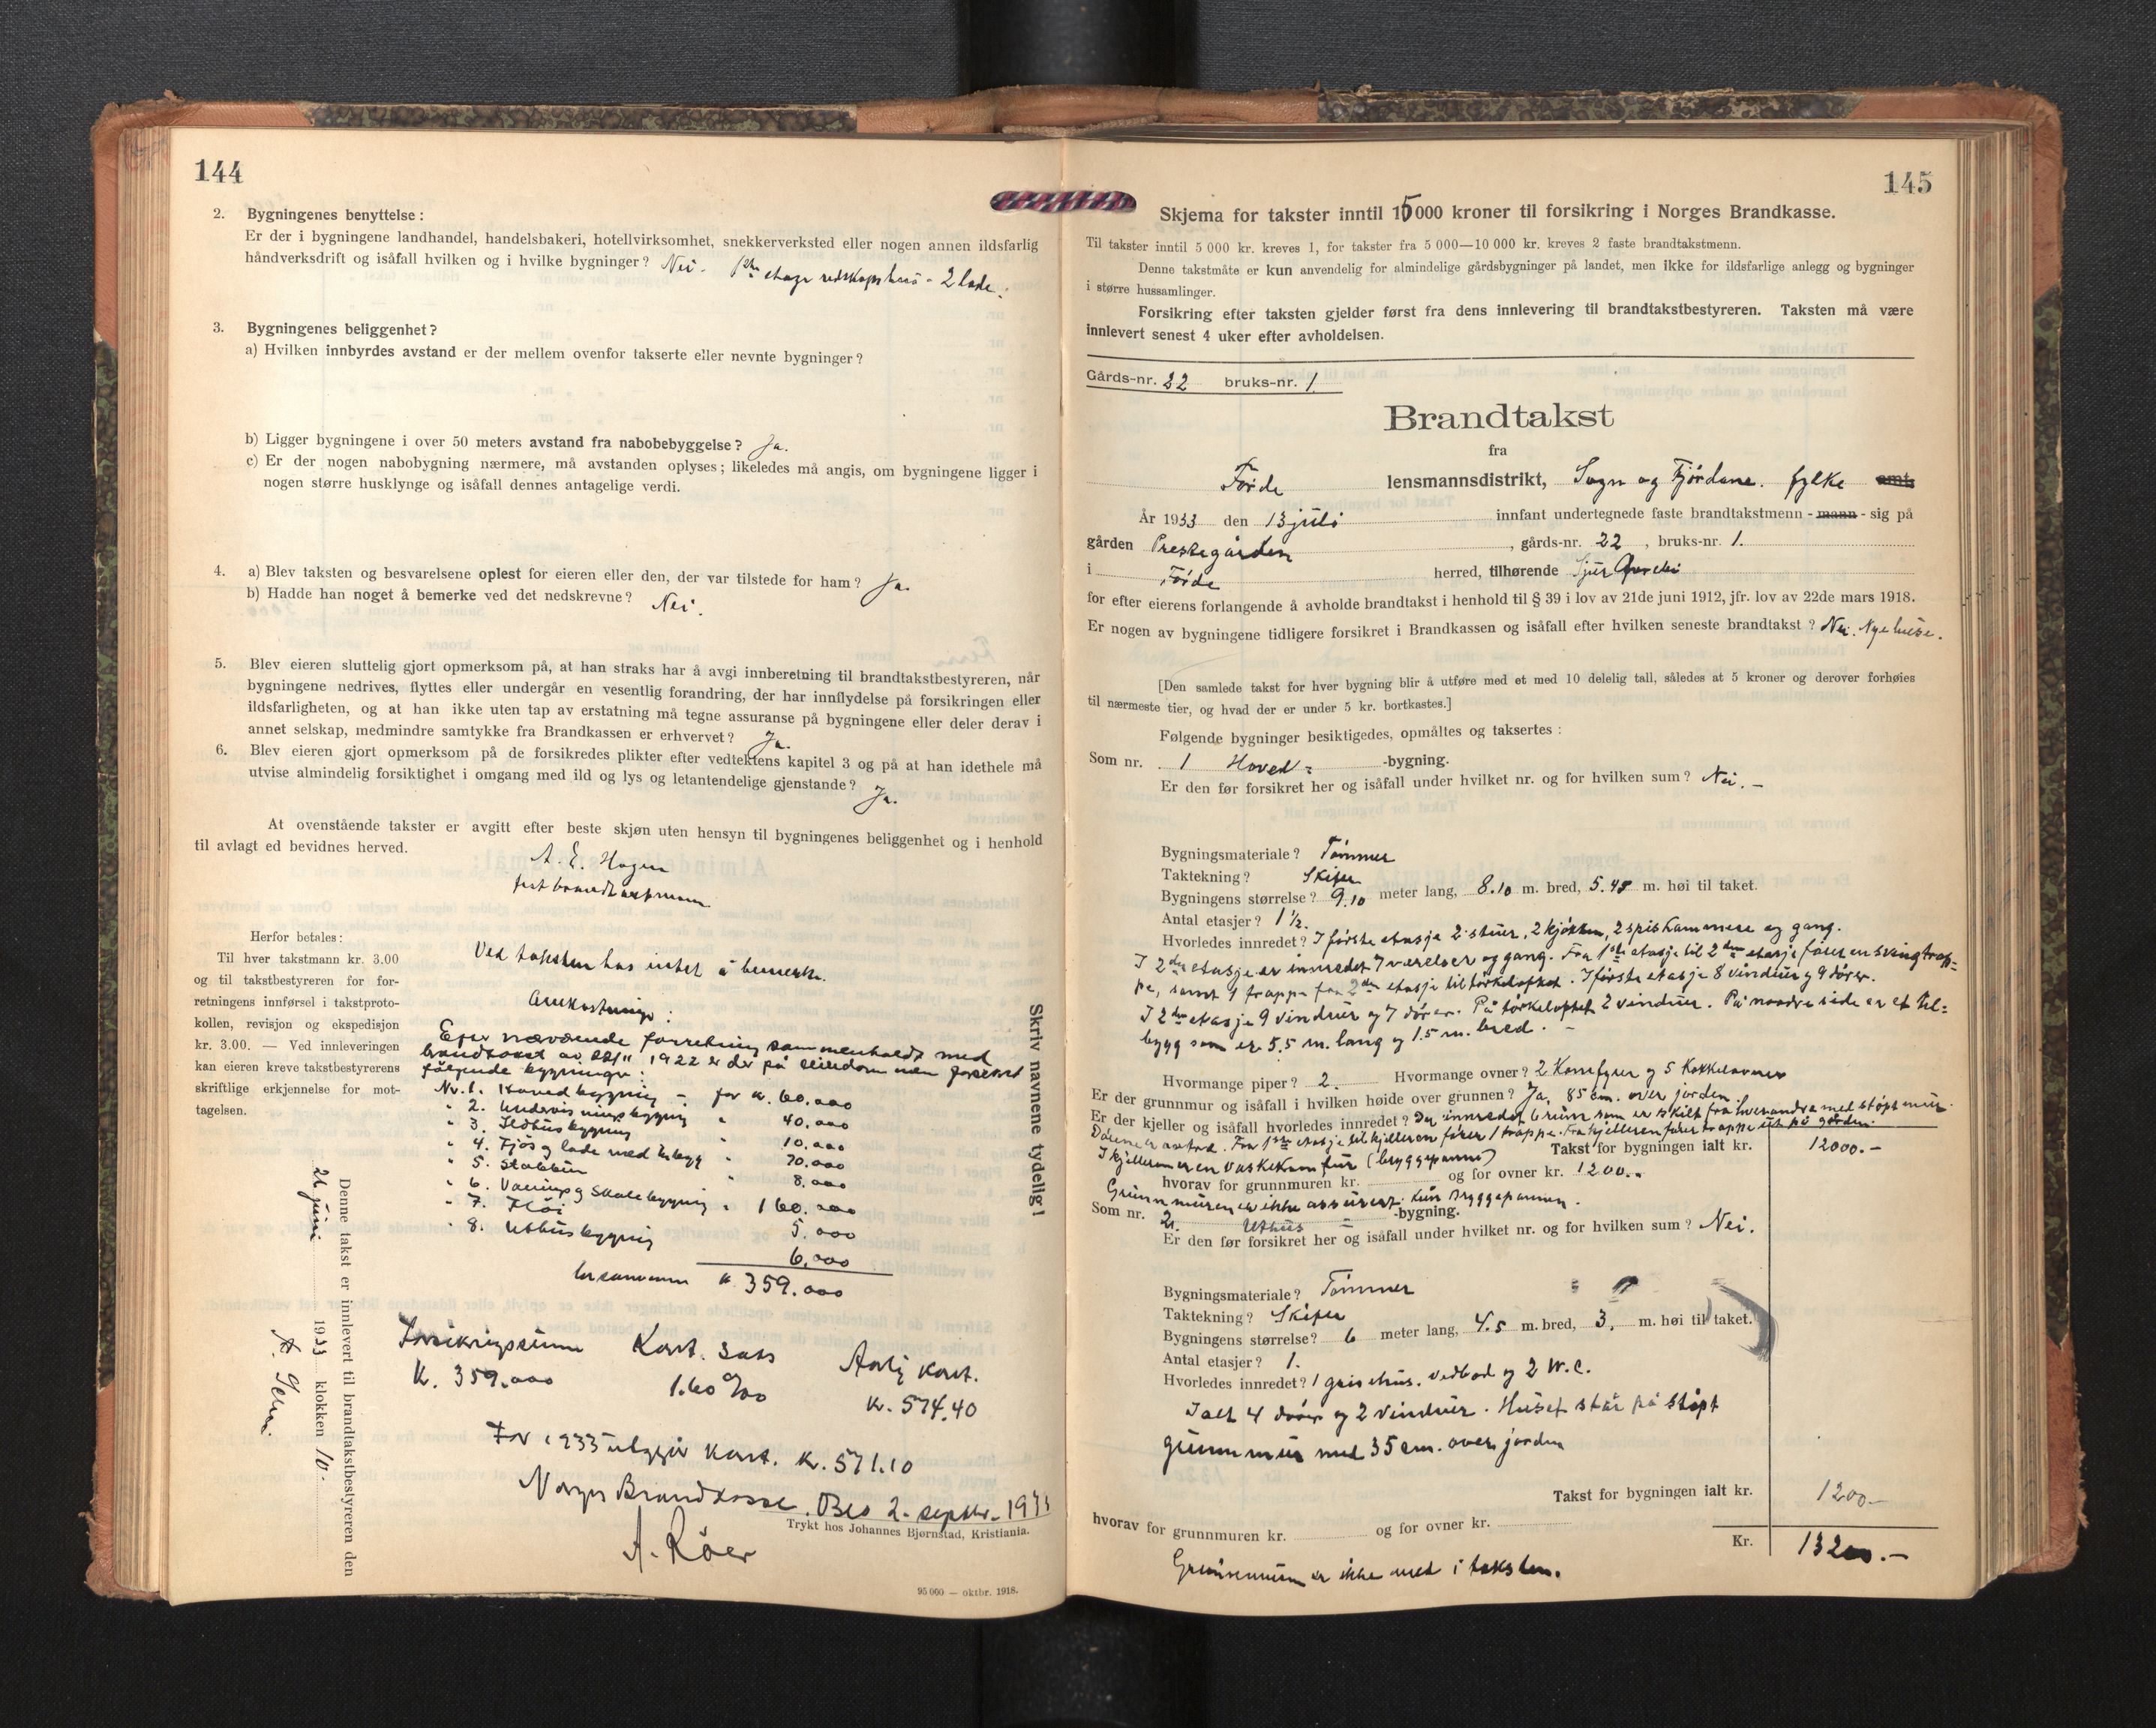 144
2. Bygningenes benyttelse:
Er der i bygningene landhandel, handelsbakeri, hotellvirksomhet, snekkerverksted eller nogen annen ildsfarlig
håndverksdrift og isåfall hvilken og i hvilke bygninger? Nei. 1ste etage redskapshus - 2 lade.
3. Bygningenes beliggenhet?
a) Hvilken innbyrdes avstand er der mellem ovenfor takserte eller nevnte bygninger?
b) Ligger bygningene i over 50 meters avstand fra nabobebyggelse? Ja.
c) Er der nogen nabobygning nærmere, må avstanden oplyses; likeledes må angis, om bygningene ligger i
nogen større husklynge og isåfall dennes antagelige verdi.
4. a) Blev taksten og besvarelsene oplest for eieren eller den, der var tilstede for ham? Ja.
b) Hadde han noget å bemerke ved det nedskrevne? Nei.
5. Blev eieren sluttelig gjort opmerksom på, at han straks har å avgi innberetning til brandtakstbestyreren, når
bygningene nedrives, flyttes eller undergår en vesentlig forandring, der har innflydelse på forsikringen eller
ildsfarligheten, og at han ikke uten tap av erstatning må tegne assuranse på bygningene eller deler derav i
annet selskap, medmindre samtykke fra Brandkassen er erhvervet? Ja.
6. Blev eieren gjort opmerksom på de forsikredes plikter efter vedtektens kapitel 3 og på at han idethele må
utvise almindelig forsiktighet i omgang med ild og lys og letantendelige gjenstande? Ja.
At ovenstående takster er avgitt efter beste skjøn uten hensyn til bygningenes beliggenhet og i henhold
til avlagt ed bevidnes herved.
A. E. Hagen
fast brandtakstmann
Herfor betales:
Til hver takstmann kr. 3.00
og til takstbestyreren for for-
retningens innførsel i takstproto-
kollen, revisjon og ekspedisjon
kr. 3.00. — Ved innleveringen
kan eieren kreve takstbestyrerens
skriftlige erkjennelse for mot-
tagelsen.
Ved taksten has intet å bemerke.
Efter nærværende forretning sammenholdt med
brandtakst av 1922 er der på eiendommen forsikret
følgende bygninger:
Nr. 1. Hovedbygning - for kr. 60.000
" 2. Undervisningsbygning " 40.000
" 3. Ildhusbygning " 10.000
" 4. Fjøs og lade med tilbygg " 70.000
" 5. Stabbur " 8.000
" 6. Vaanings og Skolebygning " 160.000
" 7. Fløi 5.000
" 8. Uthusbygning 6.000
tilsammen kr. 359.000
Forsikringssum Kont. sats Aarlig kont.
Kr. 359.000 1.60 0/00 kr. 574.40
For 1933 utgjør kont. kr. 571.10
Norges Brandkasse. Oslo 2. septbr. 1933
A. Röer
Trykt hos Johannes Bjørnstad, Kristiania.
95 000 — oktbr. 1918.
Skriv navnene tydelig!
Denne takst er innlevert til brandtakstbestyreren den
21 juni 1933 klokken 10.
145
Skjema for takster inntil 15000 kroner til forsikring i Norges Brandkasse.
Til takster inntil 5 000 kr. kreves 1, for takster fra 5 000—10 000 kr. kreves 2 faste brandtakstmenn.
Denne takstmåte er kun anvendelig for almindelige gårdsbygninger på landet, men ikke for ildsfarlige anlegg og bygninger
i større hussamlinger.
Forsikring efter taksten gjelder først fra dens innlevering til brandtakstbestyreren. Taksten må være
innlevert senest 4 uker efter avholdelsen.
Gårds-nr. 22 bruks-nr. 1.
Brandtakst
fra
Førde lensmannsdistrikt, Sogn og Fjordane. fylke amts
År 1933 den 13 juli innfant undertegnede faste brandtakstmenn - mann - sig på
gården Prestegården, gårds-nr. 22, bruks-nr. 1.
i Førde herred, tilhørende Sjur
for efter eierens forlangende å avholde brandtakst i henhold til § 39 i lov av 21de juni 1912, jfr. lov av 22de mars 1918.
Er nogen av bygningene tidligere forsikret i Brandkassen og isåfall efter hvilken seneste brandtakst? Nei. Nye huse.
[Den samlede takst for hver bygning blir å utføre med et med 10 delelig tall, således at 5 kroner og derover forhøies
til nærmeste tier, og hvad der er under 5 kr. bortkastes.]
Følgende bygninger besiktigedes, opmåltes og taksertes:
Som nr. 1 Hoved- -bygning.
Er den før forsikret her og isåfall under hvilket nr. og for hvilken sum? Nei. -
Bygningsmateriale? Tømmer
Taktekning? Skifer
Bygningens størrelse? 9.10 meter lang, 8.10 m. bred, 5.45 m. høi til taket.
Antal etasjer? 1 1/2.
Hvorledes innredet? I første etasje 2 stuer, 2 kjøkken, 2 spiskammere og gang.
I 2den etasje er innredet 7 værelser og gang. Fra 1ste etasje til 2den etasje fører en svingtrap-
pe, samt 1 trappe fra 2den etasje til tørkeloftet. I første etasje 8 vinduer og 9 dører.
I 2den etasje 9 vinduer og 7 dører. På tørkeloftet 2 vinduer. På nordre side er et til-
bygg som er 5.5 m. lang og 1.5 m. bred. -
Hvormange piper? 2. Hvormange ovner? 2 Komfyrer og 5 Kakkelovner
Er der grunnmur og isåfall i hvilken høide over grunnen? Ja, 85 cm. over jorden.
Er der kjeller og isåfall hvorledes innredet? Ja, innredet 6 rum som er skilt fra hverandre med støpt mur.
Fra 1ste etasje til kjelleren fører 1 trappe. Fra kjelleren fører trappe ut på gården.
Takst for bygningen ialt kr. 12000.-
I kjelleren er en vaskekomfur (bryggepanne)
hvorav for grunnmuren kr. og for ovner kr. 1200.-
Grunnmuren er ikke assurert. Kun bryggepannen.
Som nr. 2. Uthus - -bygning.
Er den før forsikret her og isåfall under hvilket nr. og for hvilken sum? Nei.
Bygningsmateriale? Tømmer
Taktekning? Skifer
Bygningens størrelse? 6 meter lang, 4.5 m. bred, 3. m. høi til taket.
Antal etasjer? 1.
Hvorledes innredet? 1 grisehus. vedbod og 2 W.C.
Ialt 4 dører og 2 vinduer. Huset står på støpt
grunnmur med 35 cm. over jorden
Takst for bygningen ialt kr. 1200.-
hvorav for grunnmuren kr. og for ovner kr.
Kr. 13200.-
Grunnmuren er ikke med i taksten.